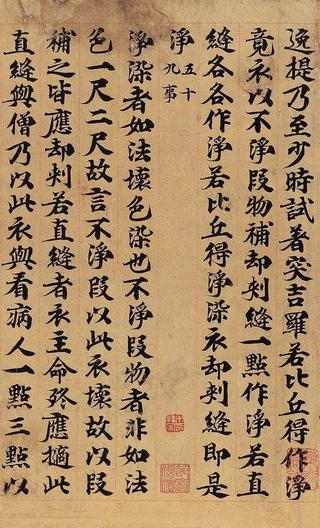 逸提乃至少時試著突吉羅若比丘得作淨
竟衣以不淨段物補却刾縫一點作淨若直
縫各各作淨若比丘得淨染衣却刾縫即是
淨五十九事
淨染者如法壞色染也不淨段物者非如法
色一尺二尺故言不淨段以此衣壞故以段
補之皆應却刾若直縫者衣王命終應擿此
直縫與僧乃以此衣與看病人一點三點以